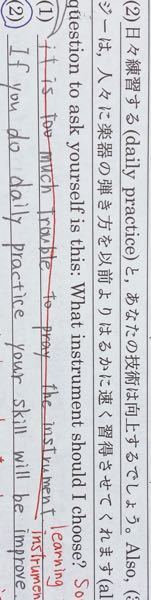 (2) 日々練習する (daily practice) と, あなたの技術は向上するでしょう. Also, (3
ジーは, 人々に楽器の弾き方を以前よりはるかに速く習得させてくれます (al
question to ask yourself is this: What instrument should I choose? So
(1) it is too much trouble to pray the instrument learning instrumen
(2) If you do daily practice your skill will be improve